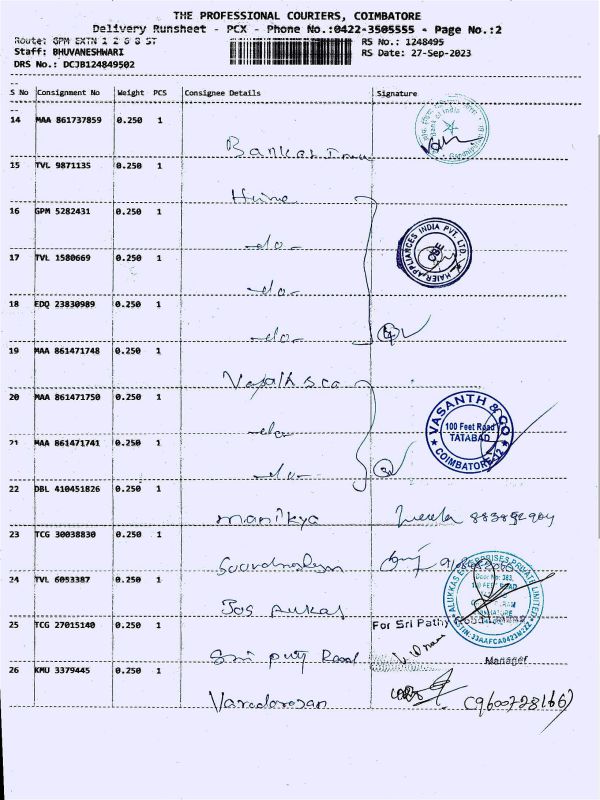 THE PROFESSIONAL COURIERS, COIMBATORE
Delivery Runsheet - PCX - Phone No.:0422-3505555 - Page No.:2
Route: GPM EXTN 1 2 6 8 ST
RS No.: 1248495
Staff: BHUVANESHWARI
RS Date: 27-Sep-2023
DRS No.: DCJB124849502
S No Consignment No Weight PCS Consignee Details Signature
14 MAA 861737859 0.250 1
Bank of India
15 TVL 9871135 0.250 1
16 GPM 5282431 0.250 1
-do-
HAIER APPLIANCES INDIA PVT. LTD.
CBE
17 TVL 1580669 0.250 1
-do-
18 EDQ 23830989 0.250 1
-do-
19 MAA 861471748 0.250 1
20 MAA 861471750 0.250 1
-do-
VASANTH & CO
100 Feet Road
TATABAD
COIMBATORE-12
21 MAA 861471741 0.250 1
-do-
22 DBL 410451826 0.250 1
manikya
23 TCG 30038830 0.250 1
24 TVL 6053387 0.250 1
Jos Aukas
ALUKKAS ENTERPRISES PRIVATE LIMITED
Door No: 383,
100 FEET ROAD
25 TCG 27015140 0.250 1
For Sri Pathy
Manager
26 KMU 3379445 0.250 1
Varedaragan
(9600728166)